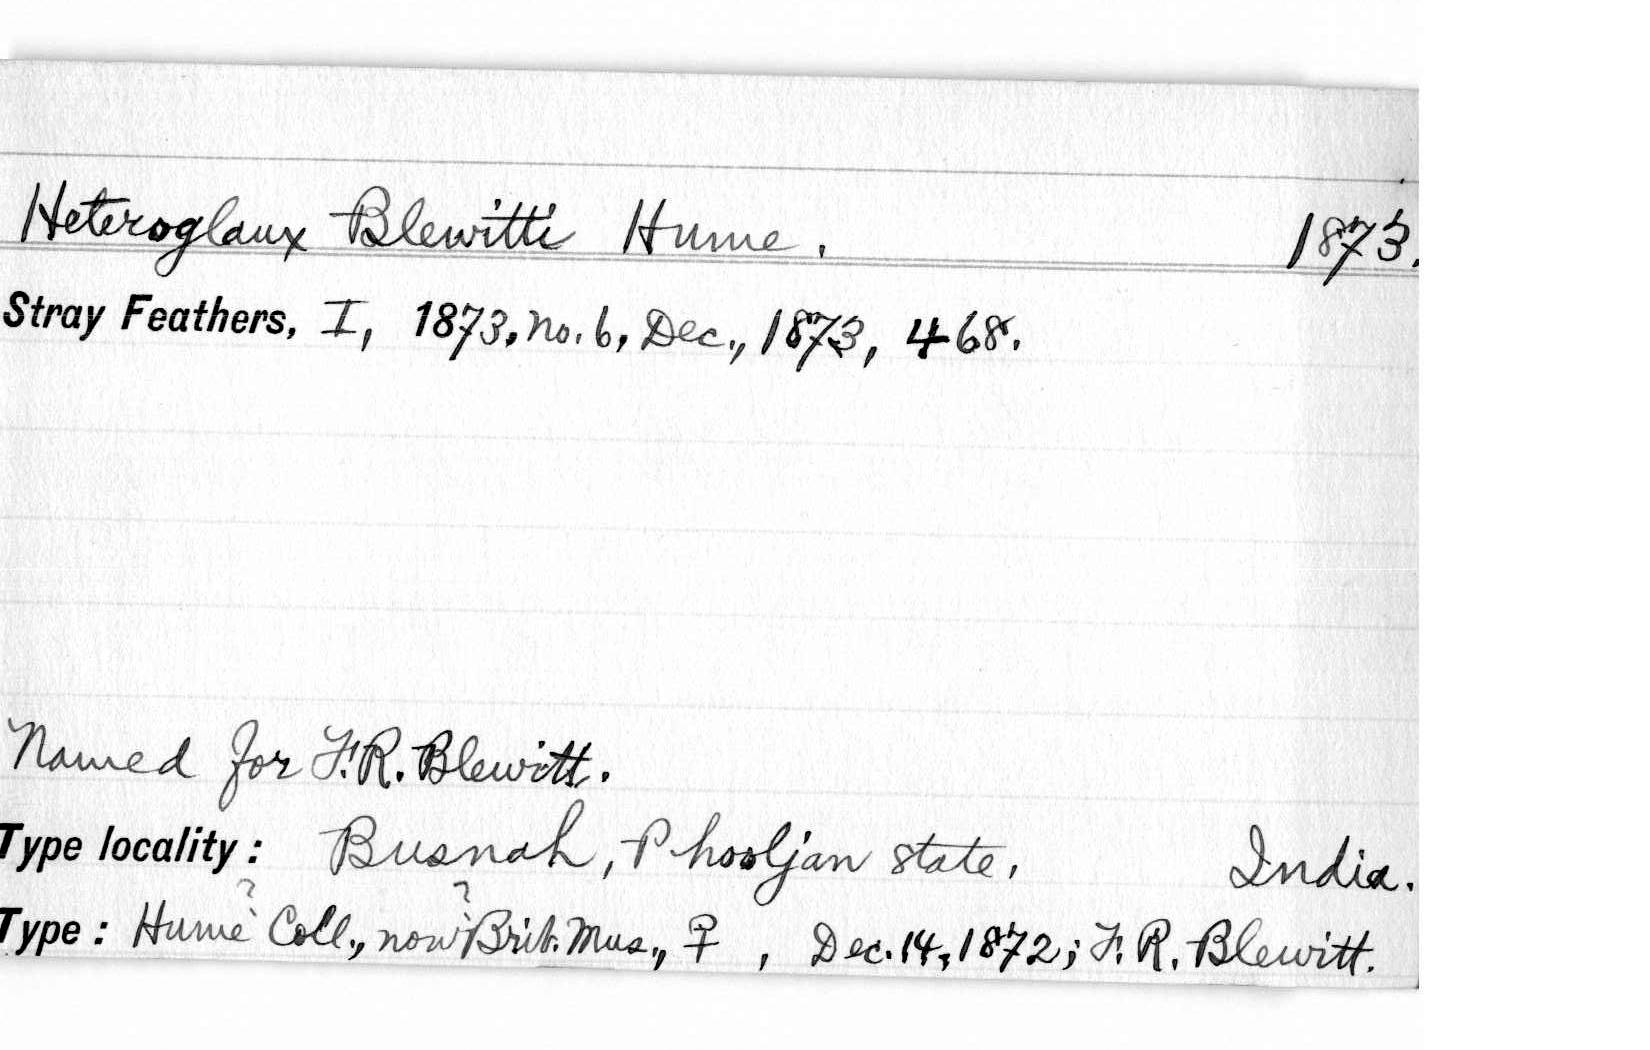 Heteroglaux Blewitti Hume. 1873.
Stray Feathers, I, 1873, no. 6, Dec., 1873, 468.
Named for F. R. Blewitt.
Type locality: Busnah, Phooljan state, India.
? ?
Type: Hume Coll., now Brit. Mus., ♀, Dec. 14, 1872; F. R. Blewitt.